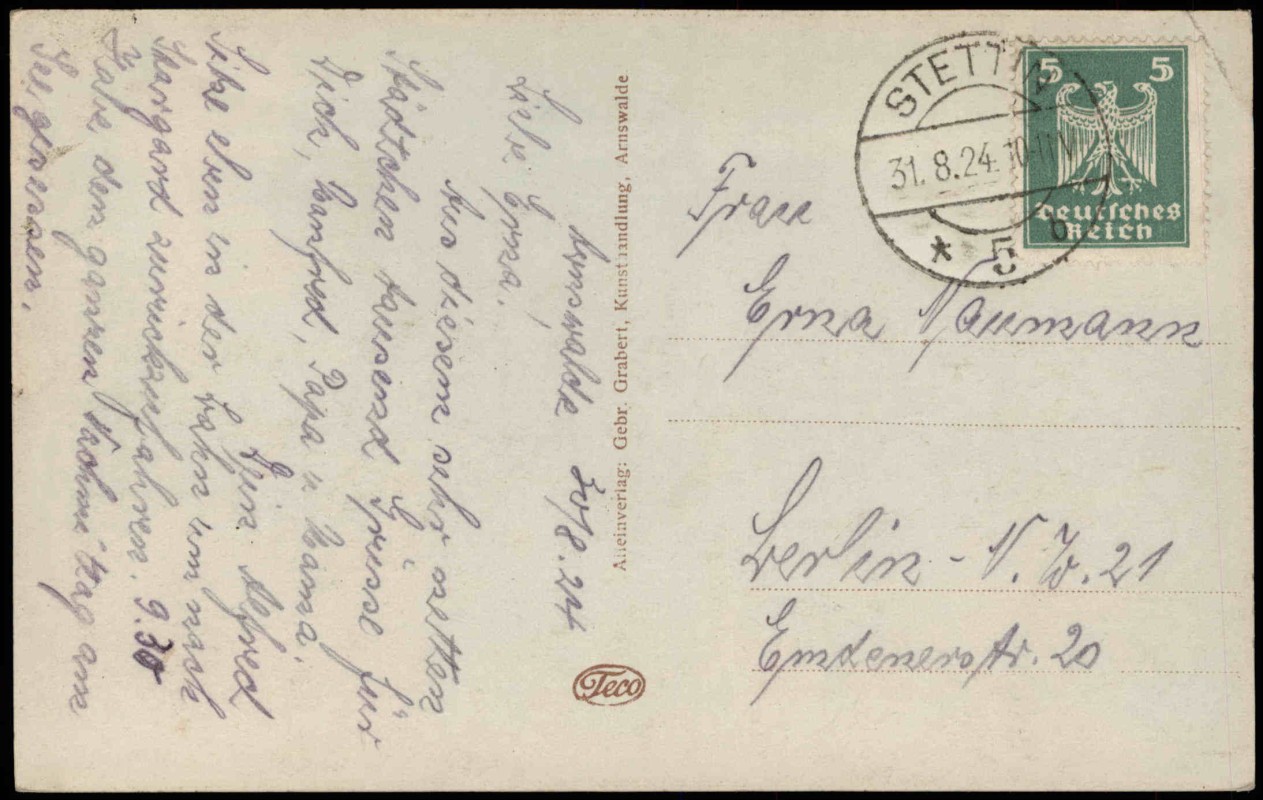 Arnswalde 30/8.24
Liebe Erna,
Aus diesem sehr netten
Städtchen tausend Grüsse für
Dich, Manfred, Papa u. Mama.
Dein Alfred
Sitze nun in der Bahn um nach
Stargard zurückzufahren. 9.30
Habe den ganzen Nachmittag am
See gesessen.
Alleinverlag: Gebr. Grabert, Kunsthandlung, Arnswalde
Teco
STETTIN
31. 8.24. 10-11 V
* 5 b
5 5
Deutsches
Reich
Frau
Erna Naumann
Berlin - N.W. 21
Emdenerstr. 20